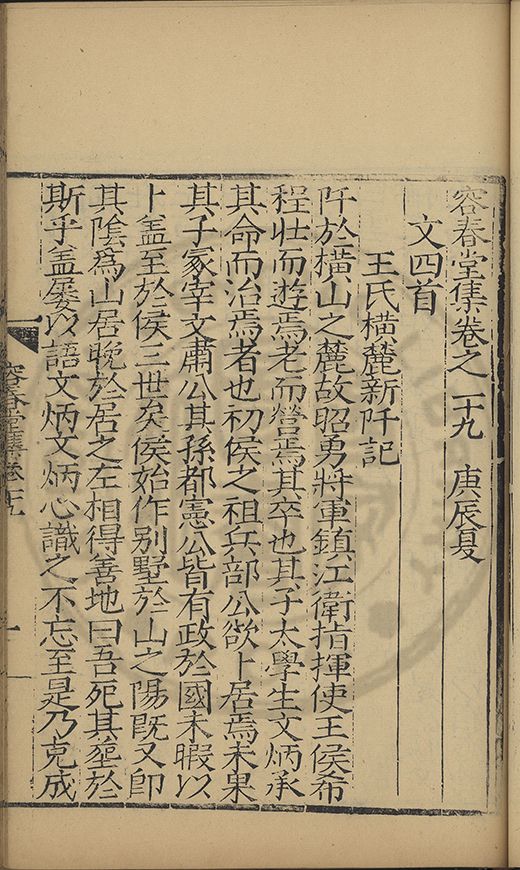 容春堂集卷之一十九 庚辰夏
文四首
王氏橫麓新阡記
阡於橫山之麓故昭勇將軍鎮江衛指揮使王侯希
程壯而遊焉老而營焉其卒也其子太學生文炳承
其命而治焉者也初侯之祖兵部公欲卜居焉未果
其子冢宰文肅公其孫都憲公皆有政於國未暇以
卜葢至於侯三世矣侯始作別墅於山之陽既又卽
其隂爲山居晚於居之左相得善地曰吾死其塟於
斯乎葢屢以語文炳文炳心識之不忘至是乃克成
容春堂集卷十九
一